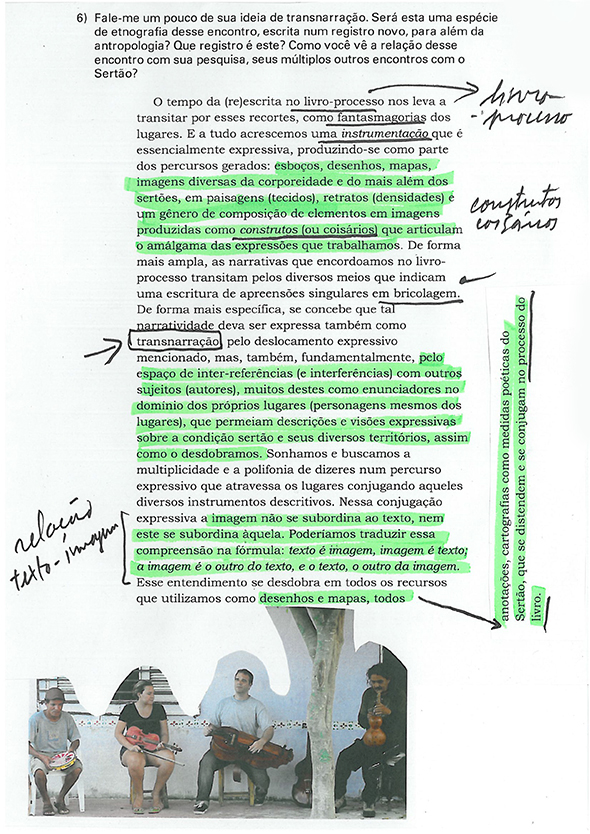 6) Fale-me um pouco de sua ideia de transnarração. Será esta uma espécie
de etnografia desse encontro, escrita num registro novo, para além da
antropologia? Que registro é este? Como você vê a relação desse
encontro com sua pesquisa, seus múltiplos outros encontros com o
Sertão?
O tempo da (re)escrita no livro-processo nos leva a
transitar por esses recortes, como fantasmagorias dos
lugares. E a tudo acrescemos uma instrumentação que é
essencialmente expressiva, produzindo-se como parte
dos percursos gerados: esboços, desenhos, mapas,
imagens diversas da corporeidade e do mais além dos
sertões, em paisagens (tecidos), retratos (densidades) e
um gênero de composição de elementos em imagens
produzidas como construtos (ou coisários) que articulam
o amálgama das expressões que trabalhamos. De forma
mais ampla, as narrativas que encordoamos no livro-
processo transitam pelos diversos meios que indicam
uma escritura de apreensões singulares em bricolagem.
De forma mais específica, se concebe que tal
narratividade deva ser expressa também como
transnarração, pelo deslocamento expressivo
mencionado, mas, também, fundamentalmente, pelo
espaço de inter-referências (e interferências) com outros
sujeitos (autores), muitos destes como enunciadores no
domínio dos próprios lugares (personagens mesmos dos
lugares), que permeiam descrições e visões expressivas
sobre a condição sertão e seus diversos territórios, assim
como o desdobramos. Sonhamos e buscamos a
multiplicidade e a polifonia de dizeres num percurso
expressivo que atravessa os lugares conjugando aqueles
diversos instrumentos descritivos. Nessa conjugação
expressiva a imagem não se subordina ao texto, nem
este se subordina àquela. Poderíamos traduzir essa
compreensão na fórmula: texto é imagem, imagem é texto;
a imagem é o outro do texto, e o texto, o outro da imagem.
Esse entendimento se desdobra em todos os recursos
que utilizamos como desenhos e mapas, todos
anotações, cartografias como medidas poéticas do
Sertão, que se distendem e se conjugam no processo do
livro.
livro-
-processo
construtos
coisários
relação
texto-imagem